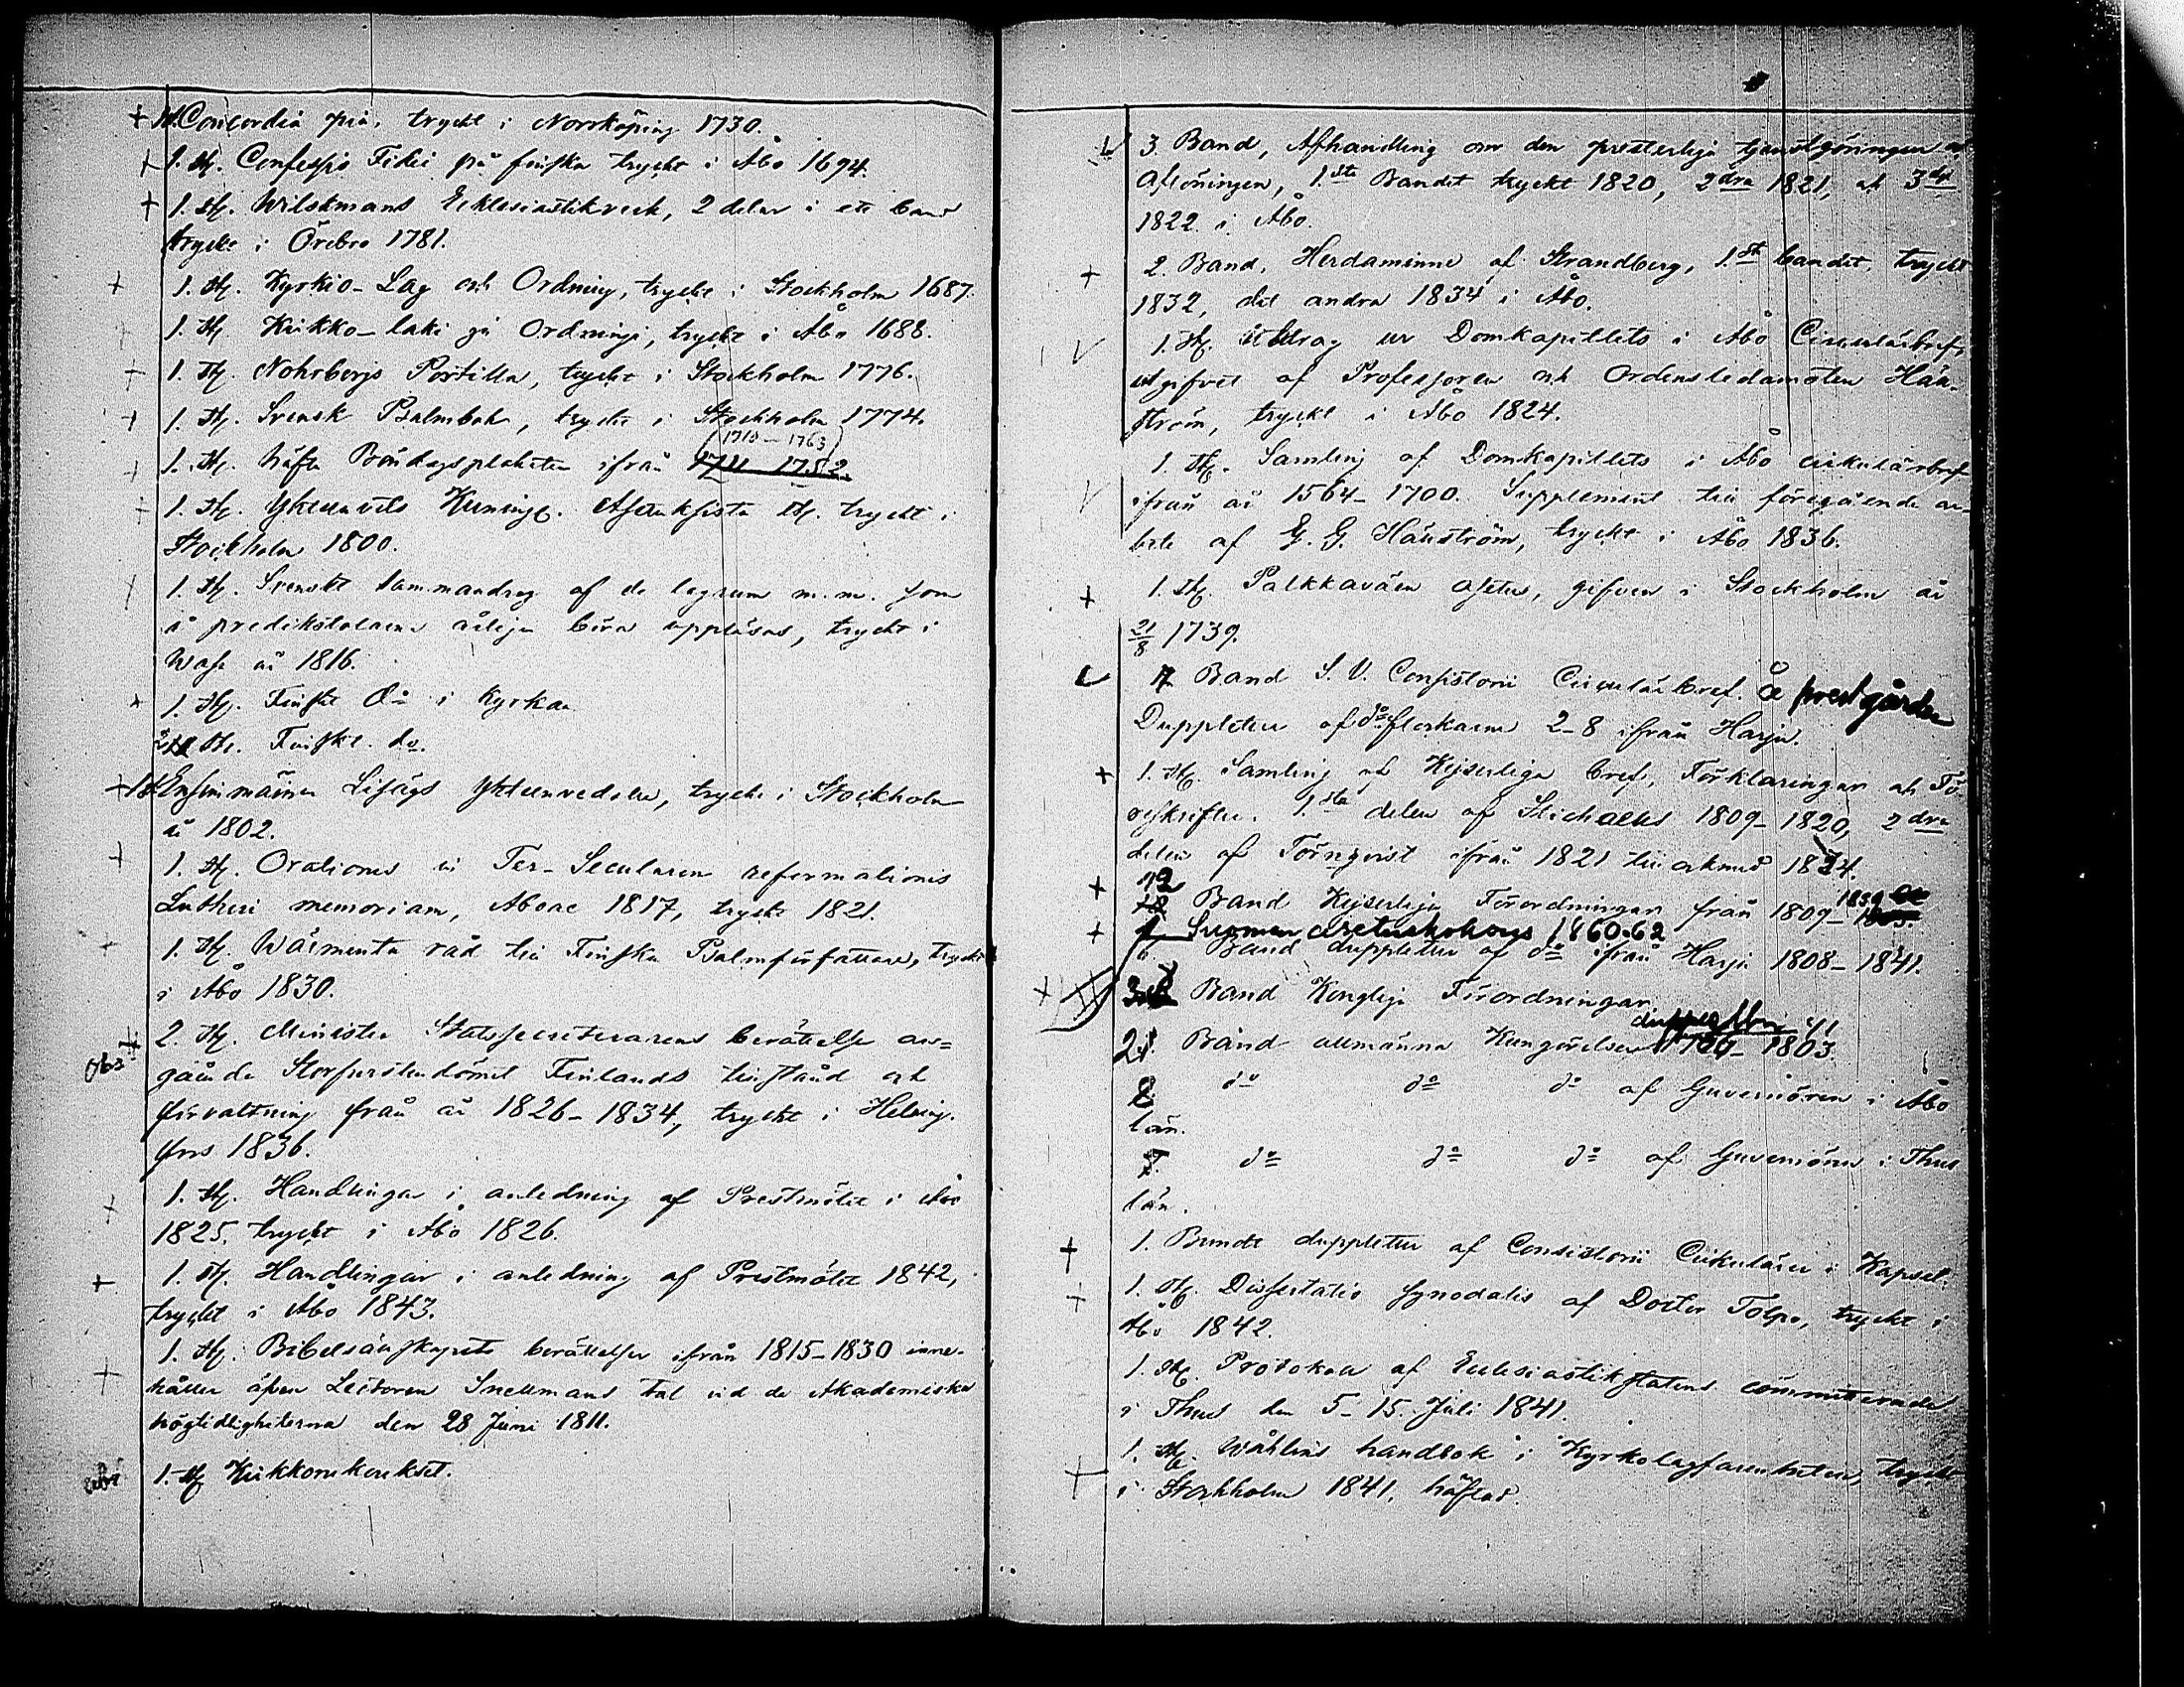 + 1 st. Concordia pia, tryckt i Norrköping 1730.
+ 1. st. Confessio Fidei på finska tryckt i Åbo 1694.
+ 1. st. Wilskmans Ecklesiastikverk, 2 delar i ett band
tryckt i Örebro 1781.
+ 1. st. Kyrkio-Lag och Ordning, tryckt i Stockholm 1687.
1. st. Kirkko-laki ja Ordningi, tryckt i Åbo 1688.
+ 1. st. Nohrborgs Postilla, tryckt i Stockholm 1776.
+ 1. st. Svensk Psalmbok, tryckt i Stockholm 1774.
(1710-1763)
+ 1. st. häfte Böndagsplakater ifrån 1711 1752.
+ 1. st. Yhteenveto Kuning. Asetuksista st. tryckt i
Stockholm 1800.
1. st. Svenskt sammandrag af de lagrum m.m. som
å predikstolarne årligen böra uppläsas, tryckt i
Wasa år 1816.
+ 1. st. Finskt do i Kyrkan
2 st. Finskt. do.
+ 1 st Ensimmäinen Lisäys Yhteenvedolle, tryckt i Stockholm
år 1802.
+ 1. st. Orationes in Ter-Secularem reformationis
Lutheri memoriam, Aboae 1817, tryckt 1821.
+ 1. st. Wälmenta råd till Finska Psalmförfattare, tryckt
i Åbo 1830.
Obs + 2. st. Minister Statssecreterarens berättelse an=
gående Storfurstendömet Finlands tillstånd och
förvaltning från år 1826-1834, tryckt i Helsing-
fors 1836.
+ 1. st. Handlingar i anledning af Prestmötet i Åbo
1825, tryckt i Åbo 1826.
+ 1. st. Handlingar i anledning af Prestmötet 1842,
tryckt i Åbo 1843.
+ 1. st. Bibelsällskapets berättelser ifrån 1815-1830 inne-
håller äfven Lectoren Snellmans tal vid de Akademiska
högtidligheterna den 28 Juni 1811.
1. st Kirkkorukoukset.
3. Band, Afhandling om den presterliga tjenstgöringen och
Aflöningen, 1.sta Bandet tryckt 1820, 2dra 1821, och 3dje
1822 i Åbo.
+ 2. Band, Herdaminne af Strandberg, 1.sta bandet, tryckt
1832, det andra 1834 i Åbo.
V 1. st. Utdrag ur Domkapitlets i Åbo Circulärbref,
utgifvet af Professoren och Ordensledamoten Hän-
ström, tryckt i Åbo 1824.
V 1. st. Samling af Domkapitlets i Åbo cirkulärbref
ifrån år 1564-1700. Supplement till föregående ar-
bete af G. G. Hänström, tryckt i Åbo 1836.
+ 1. st. Palkkaväen asetus, gifven i Stockholm år
21/8 1739.
7. Band S. V. Consistorii Circulärbref. Å prestgården
Duppletter af do flockarne 2-8 ifrån Harju.
+ 1. st. Samling af Kejserliga bref, Förklaringar och Fö-
reskrifter. 1.sta delen af Stichaeus 1809-1820, 2dra
delen af Törnqvist ifrån 1821 till och med 1824.
+ 12 Band Kejserliga Förordningar från 1809-1859
+ 1 Suomen Asetuskokous 1860-62
Band duppletter af do ifrån Harju 1808-1841.
+ 3 Band Kongliga Förordningar
21. Band allmänna Kungörelser 1750-1803
8. do do do af Guvernören i Åbo
län.
7. do do do af Guvernören i Thus
län.
+ 1. Bundt duppletter af Consistorii Cirkulärer i Kapsel.
+ 1. st. Dissertatio synodalis af Doctor Tolpo, tryckt i
Åbo 1842.
1. st. Protokoll af Ecclesiastikstatens committerade
i Thus den 5-15 Juli 1841.
+ 1. st. Wåhlins handbok i Kyrkolagfarenheten, tryckt
i Stockholm 1841. häftad.